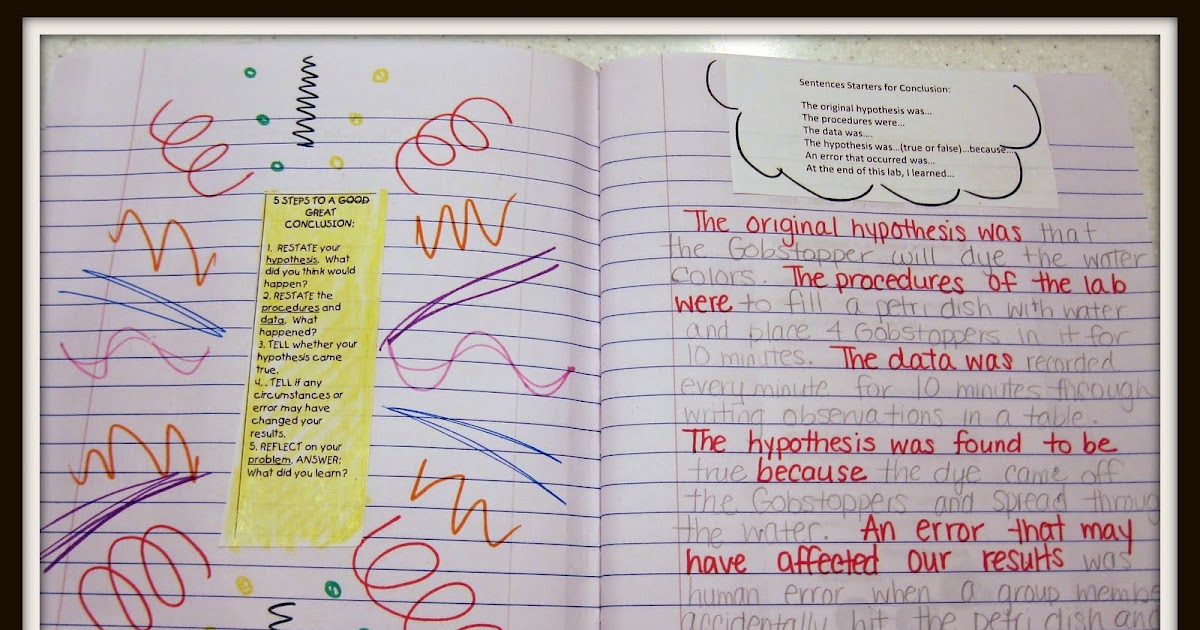 5 STEPS TO A GOOD
GREAT
CONCLUSION:
1. RESTATE your
hypothesis. What
did you think would
happen?
2. RESTATE the
procedures and
data. What
happened?
3. TELL whether your
hypothesis came
true.
4. . TELL if any
circumstances or
error may have
changed your
results.
5. REFLECT on your
problem. ANSWER:
What did you learn?
Sentences Starters for Conclusion:
The original hypothesis was...
The procedures were...
The data was....
The hypothesis was...(true or false)...because...
An error that occurred was...
At the end of this lab, I learned...
The original hypothesis was that
the Gobstopper will dye the water
colors. The procedures of the lab
were to fill a petri dish with water
and place 4 Gobstoppers in it for
10 minutes. The data was recorded
every minute for 10 minutes through
writing observations in a table.
The hypothesis was found to be
true because the dye came off
the Gobstoppers and spread throug
the water. An error that may
have affected our results was
human error when a group membe
accidentally hit the petri dish and